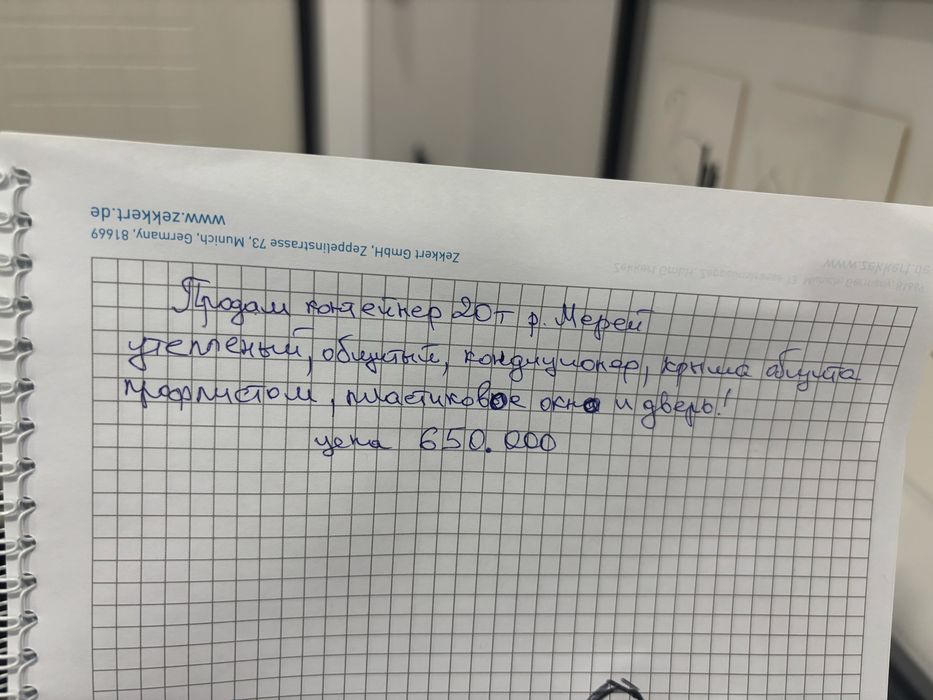 www.zekkert.de
Zekkert GmbH, Zeppelinstrasse 73, Munich, Germany, 81669
Продам контейнер 20т р. Мерей
утепленый, обшитый, кондиционер, крыша обшита
профлистом, пластиковое окно и дверь!
цена 650.000